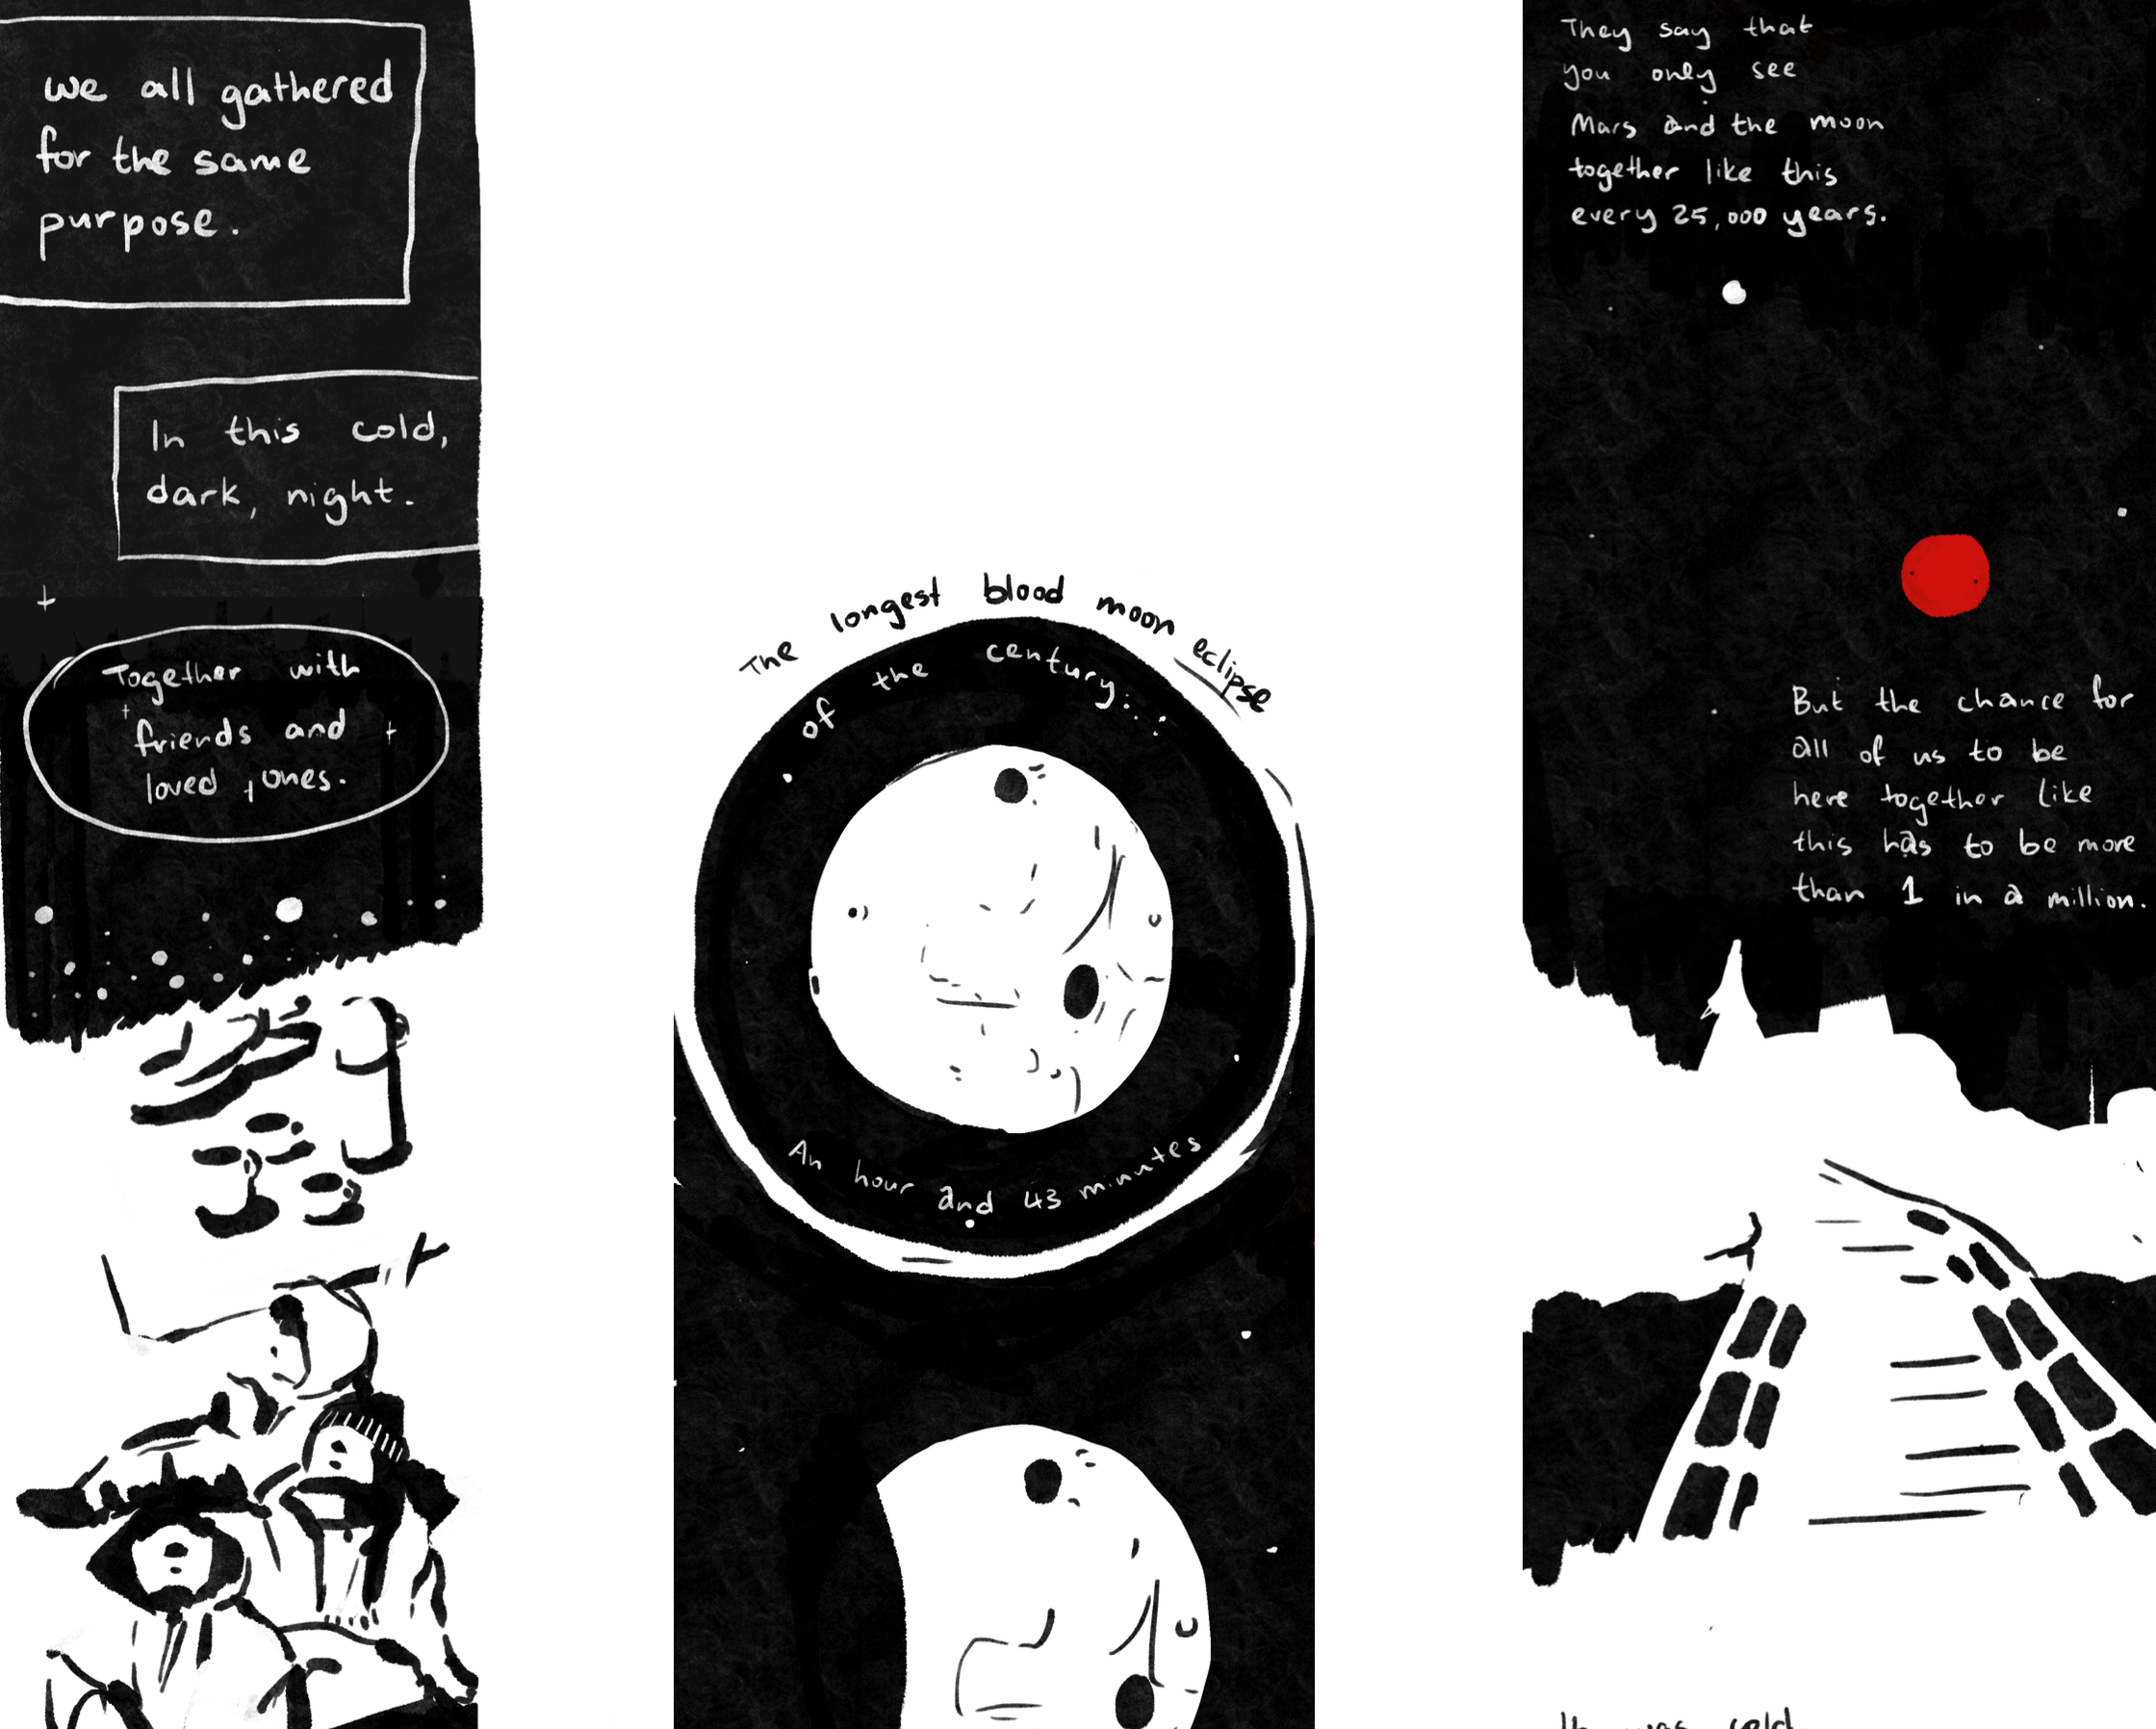 we all gathered
for the same
purpose.
In this cold,
dark, night.
Together with
friends and
loved ones.
The longest blood moon eclipse
of the century:
An hour and 43 minutes
They say that
you only see
Mars and the moon
together like this
every 25,000 years.
But the chance for
all of us to be
here together like
this has to be more
than 1 in a million.
It was cold